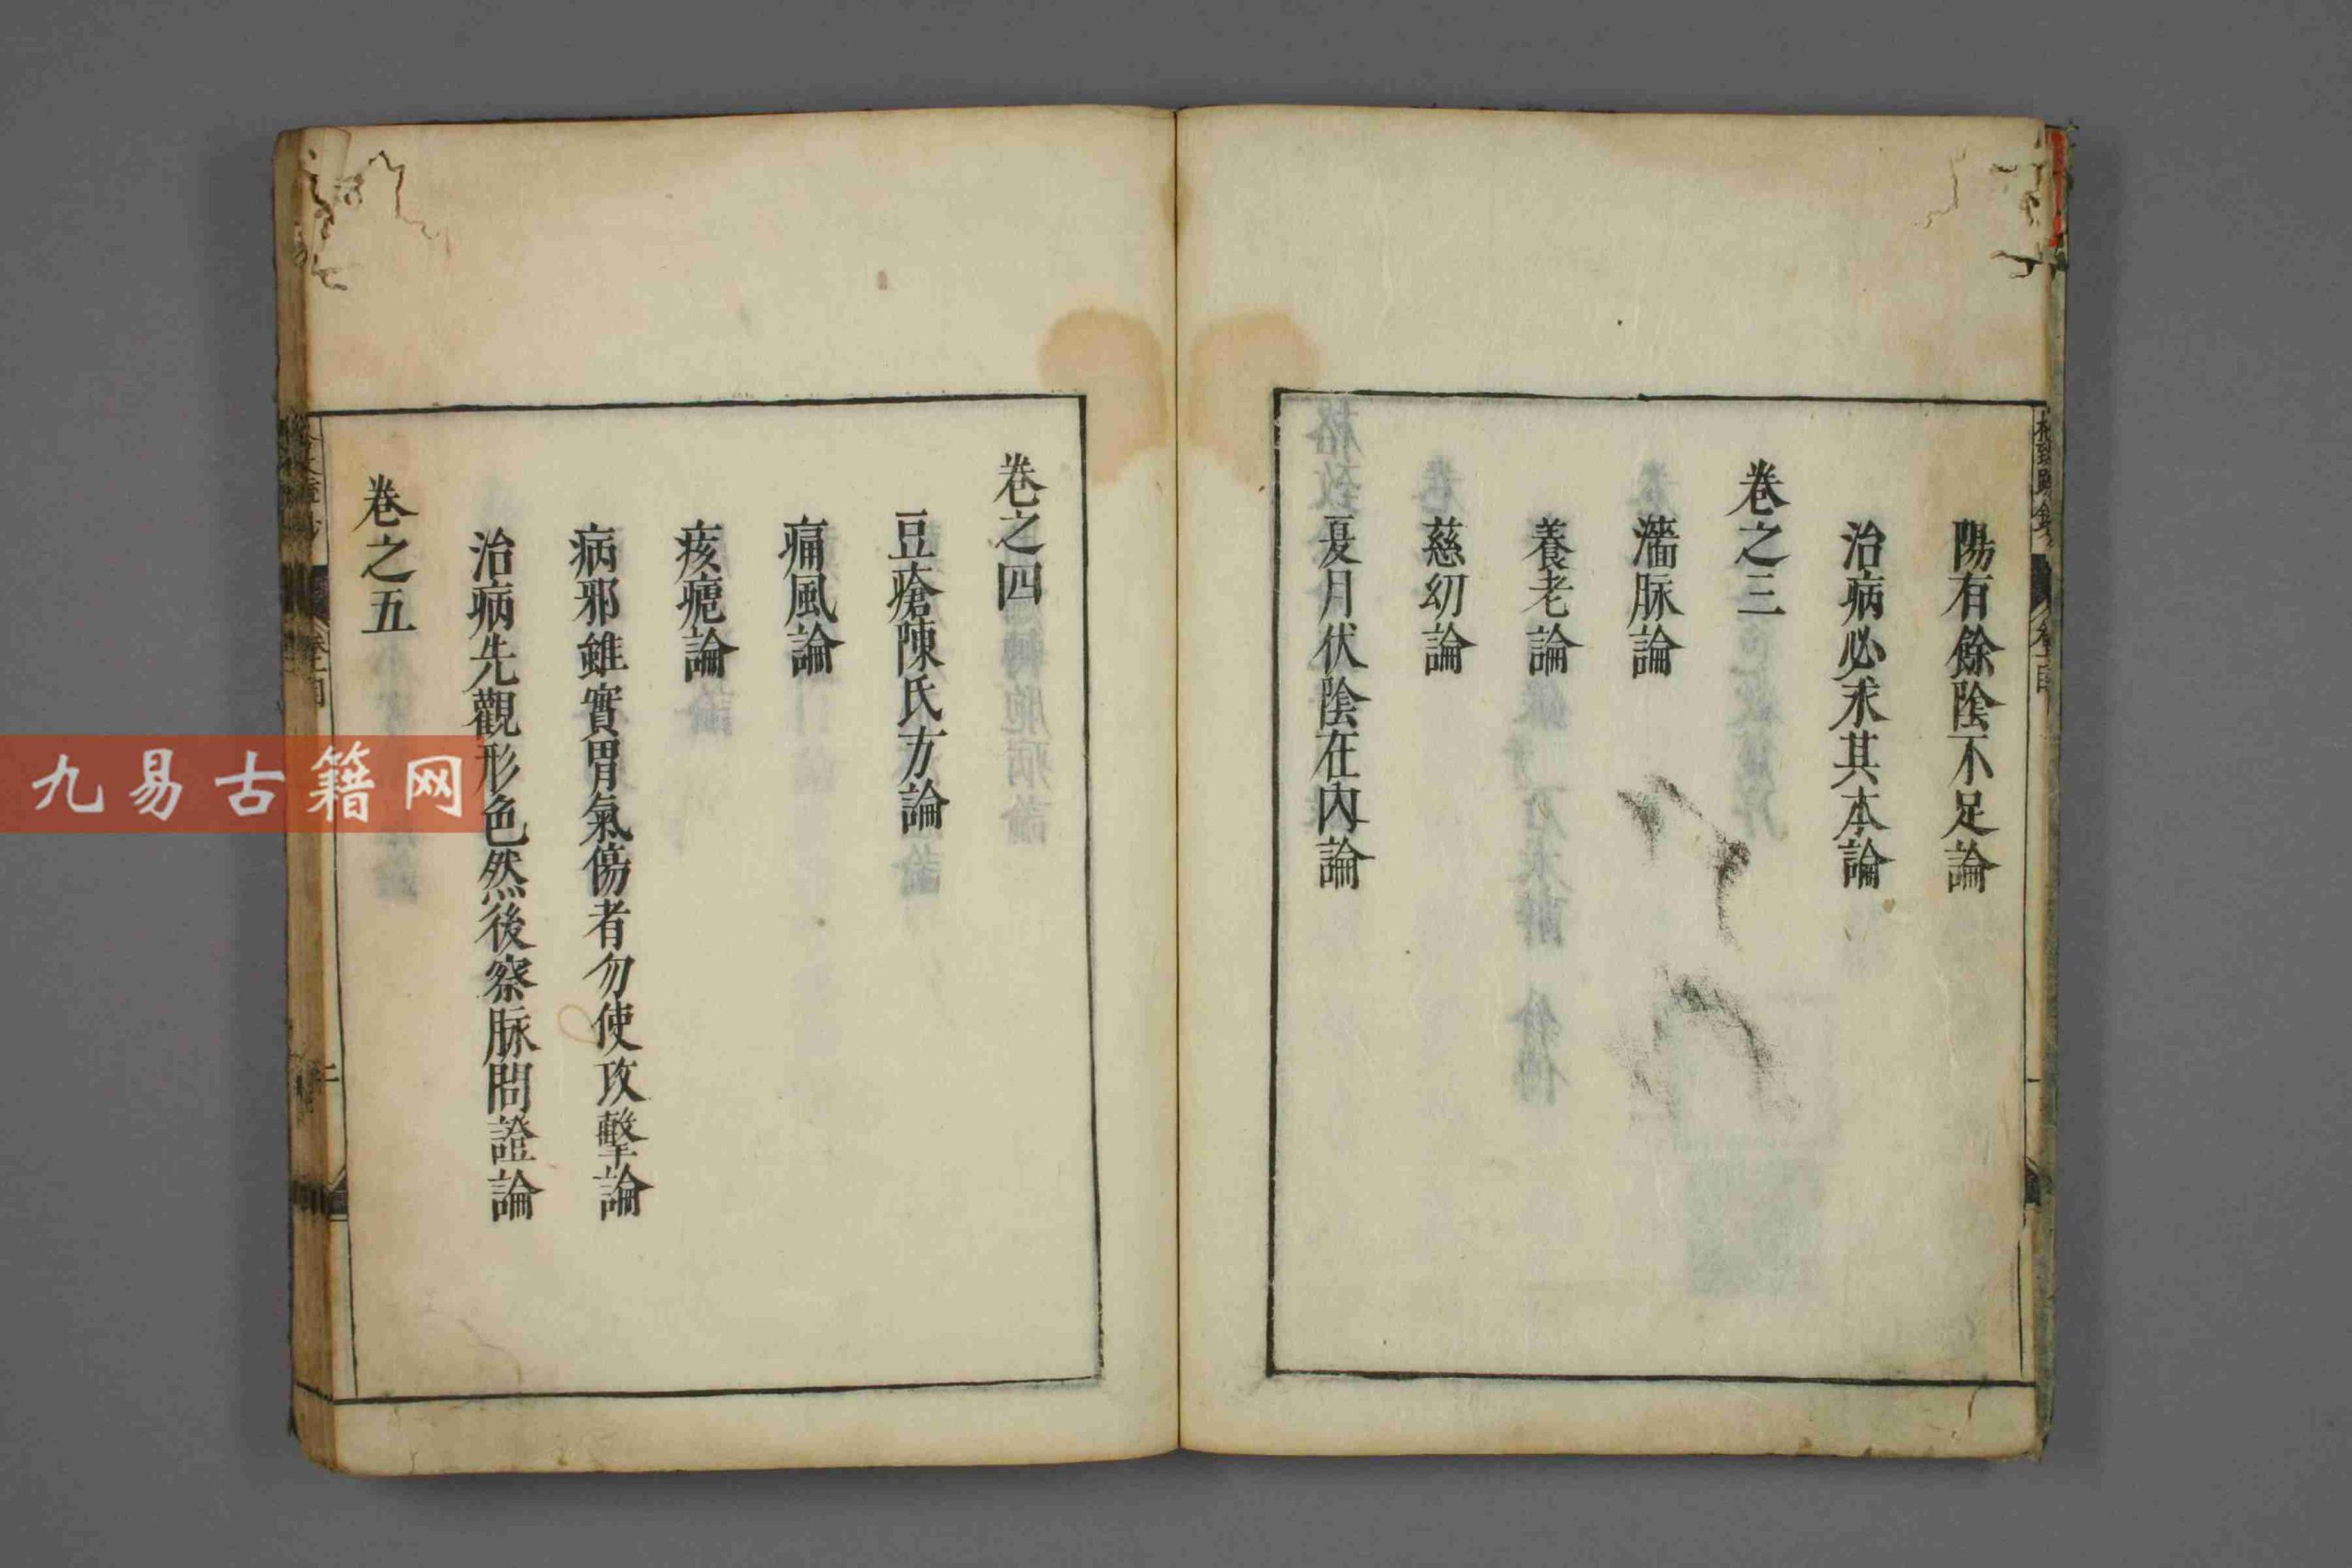 陽有餘陰不足論
治病必求其本論
卷之三
濇脉論
養老論
慈幼論
夏月伏陰在內論
卷之四
豆瘡陳氏方論
痛風論
痎瘧論
病邪雖實胃氣傷者勿使攻擊論
治病先觀形色然後察脉問證論
卷之五
九易古籍网